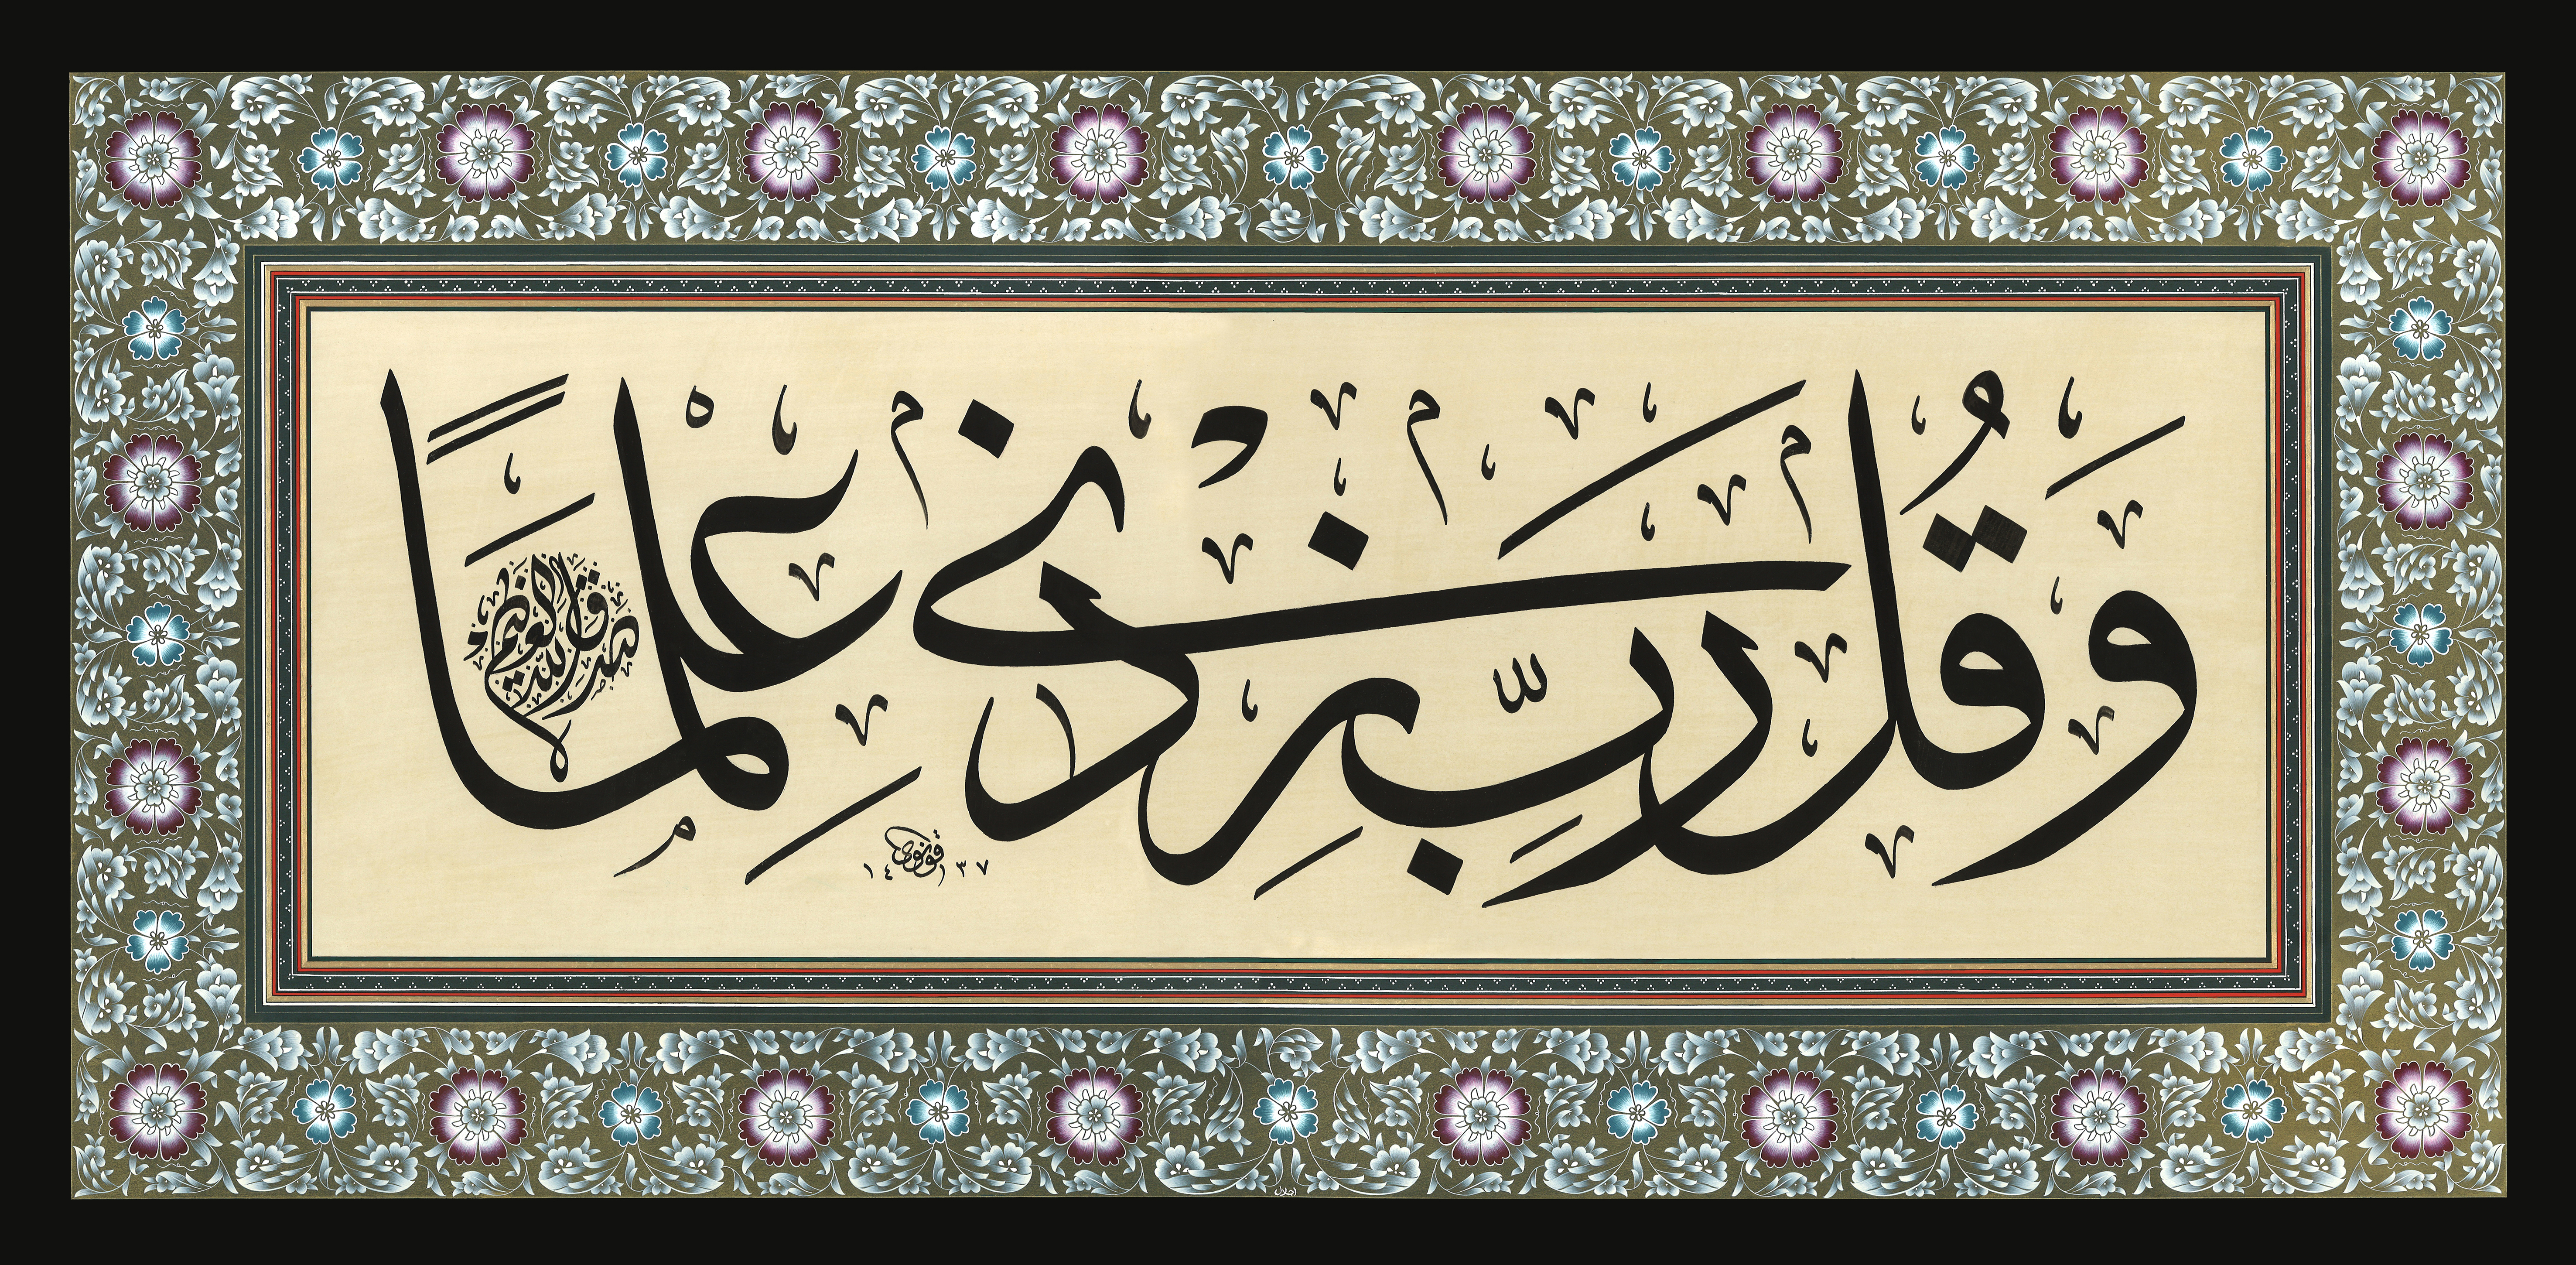 وَقُل رَّبِّ زِدْنِي عِلْمًا
صدق الله العظيم
قونوي
١٤٣٧